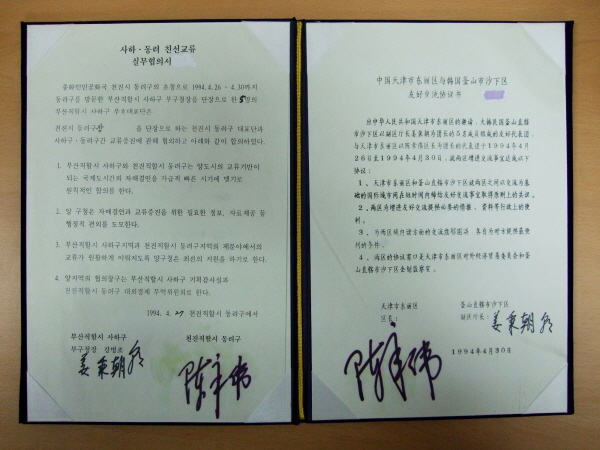 사하·동려 친선교류
실무협의서
중화인민공화국 천진시 동려구의 초청으로 1994.4.26 - 4.30까지
동려구를 방문한 부산직할시 사하구 부구청장을 단장으로 한 5명의
부산직할시 사하구 우호대표단은
천진시 동려구 을 단장으로 하는 천진시 동려구 대표단과
사하구·동려구간 교류증진에 관해 협의하고 아래와 같이 합의하였다.
1. 부산직할시 사하구와 천진직할시 동려구는 양도시의 교류기반이
되는 국제도시간의 자매결연을 가급적 빠른 시기에 맺기로
원칙적인 합의를 한다.
2. 양 구청은 자매결연과 교류증진을 위한 필요한 정보, 자료제공 등
행정적 편의를 도모한다.
3. 부산직할시 사하구지역과 천진직할시 동려구지역의 제분야에서의
교류가 원활하게 이뤄지도록 양구청은 최선의 지원을 하기로 한다.
4. 양지역의 협의창구는 부산직할시 사하구 기획감사실과
천진직할시 동려구 대외경제 무역위원회로 한다.
1994. 4. 29 천진직할시 동려구에서
부산직할시 사하구
부구청장 강병조
천진직할시 동려구
姜秉朝
中国天津市东丽区与韩国釜山市沙下区
友好交流协议书
应中华人民共和国天津市东丽区的邀请，大韩民国釜山直辖
市沙下区以副区厅长姜秉朝为团长的5名成员组成的友好代表团，
与天津市东丽区以陈常伟区长为团长的代表团于1994年4月
26日至1994年4月30日，就两区增进交流事宜达成以下
协议：
1、天津市东丽区和釜山直辖市沙下区就两区之间以交流为基
础的国际城市间在短时间内缔结友好交流事宜取得原则上的共识。
2、两区为增进友好交流提供必要的情报、资料等行政上的便
利。
3、为两区域内诸方面的交流能顺圆满，各自为对方提供最便
利的条件。
4、两区的协议窗口是天津市东丽区对外经济贸易委员会和釜
山直辖市沙下区企划监察室。
天津市东丽区
区长：
釜山直辖市沙下区
副区厅长：姜秉朝
1994年4月30日